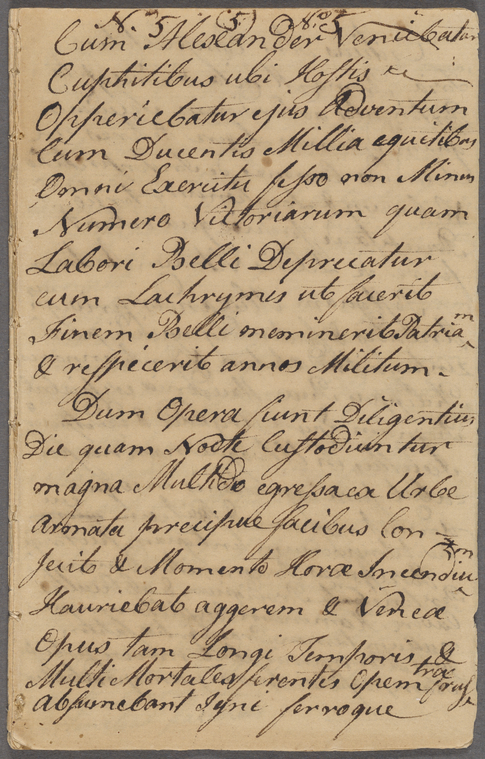 N. 5 5. N.o 5
Cum Alexander Veniebatur
Cuphitibus ubi Hostis
Opperiebatur ejus Adventum
Cum Ducentis Millia equitibus
Omni Exercitu fesso non Minus
Numero Victoriarum quam
Labori Belli Deprecatur
cum Lachrymis ut facerit
Finem Belli meminerit Patriam
& respicerit annos Militum.
Dum Opera fiunt Diligentius
Die quam Nocte Custodiuntur
magna Multido egressa ex Urbe
armata precipue facibus Con-
jecit & Momento Horæ Incendium
Hauriebat aggerem & Vineæ
Opus tam Longi Temporis &
Multi Mortales ferentis Opem
absumebant Igni ferroque